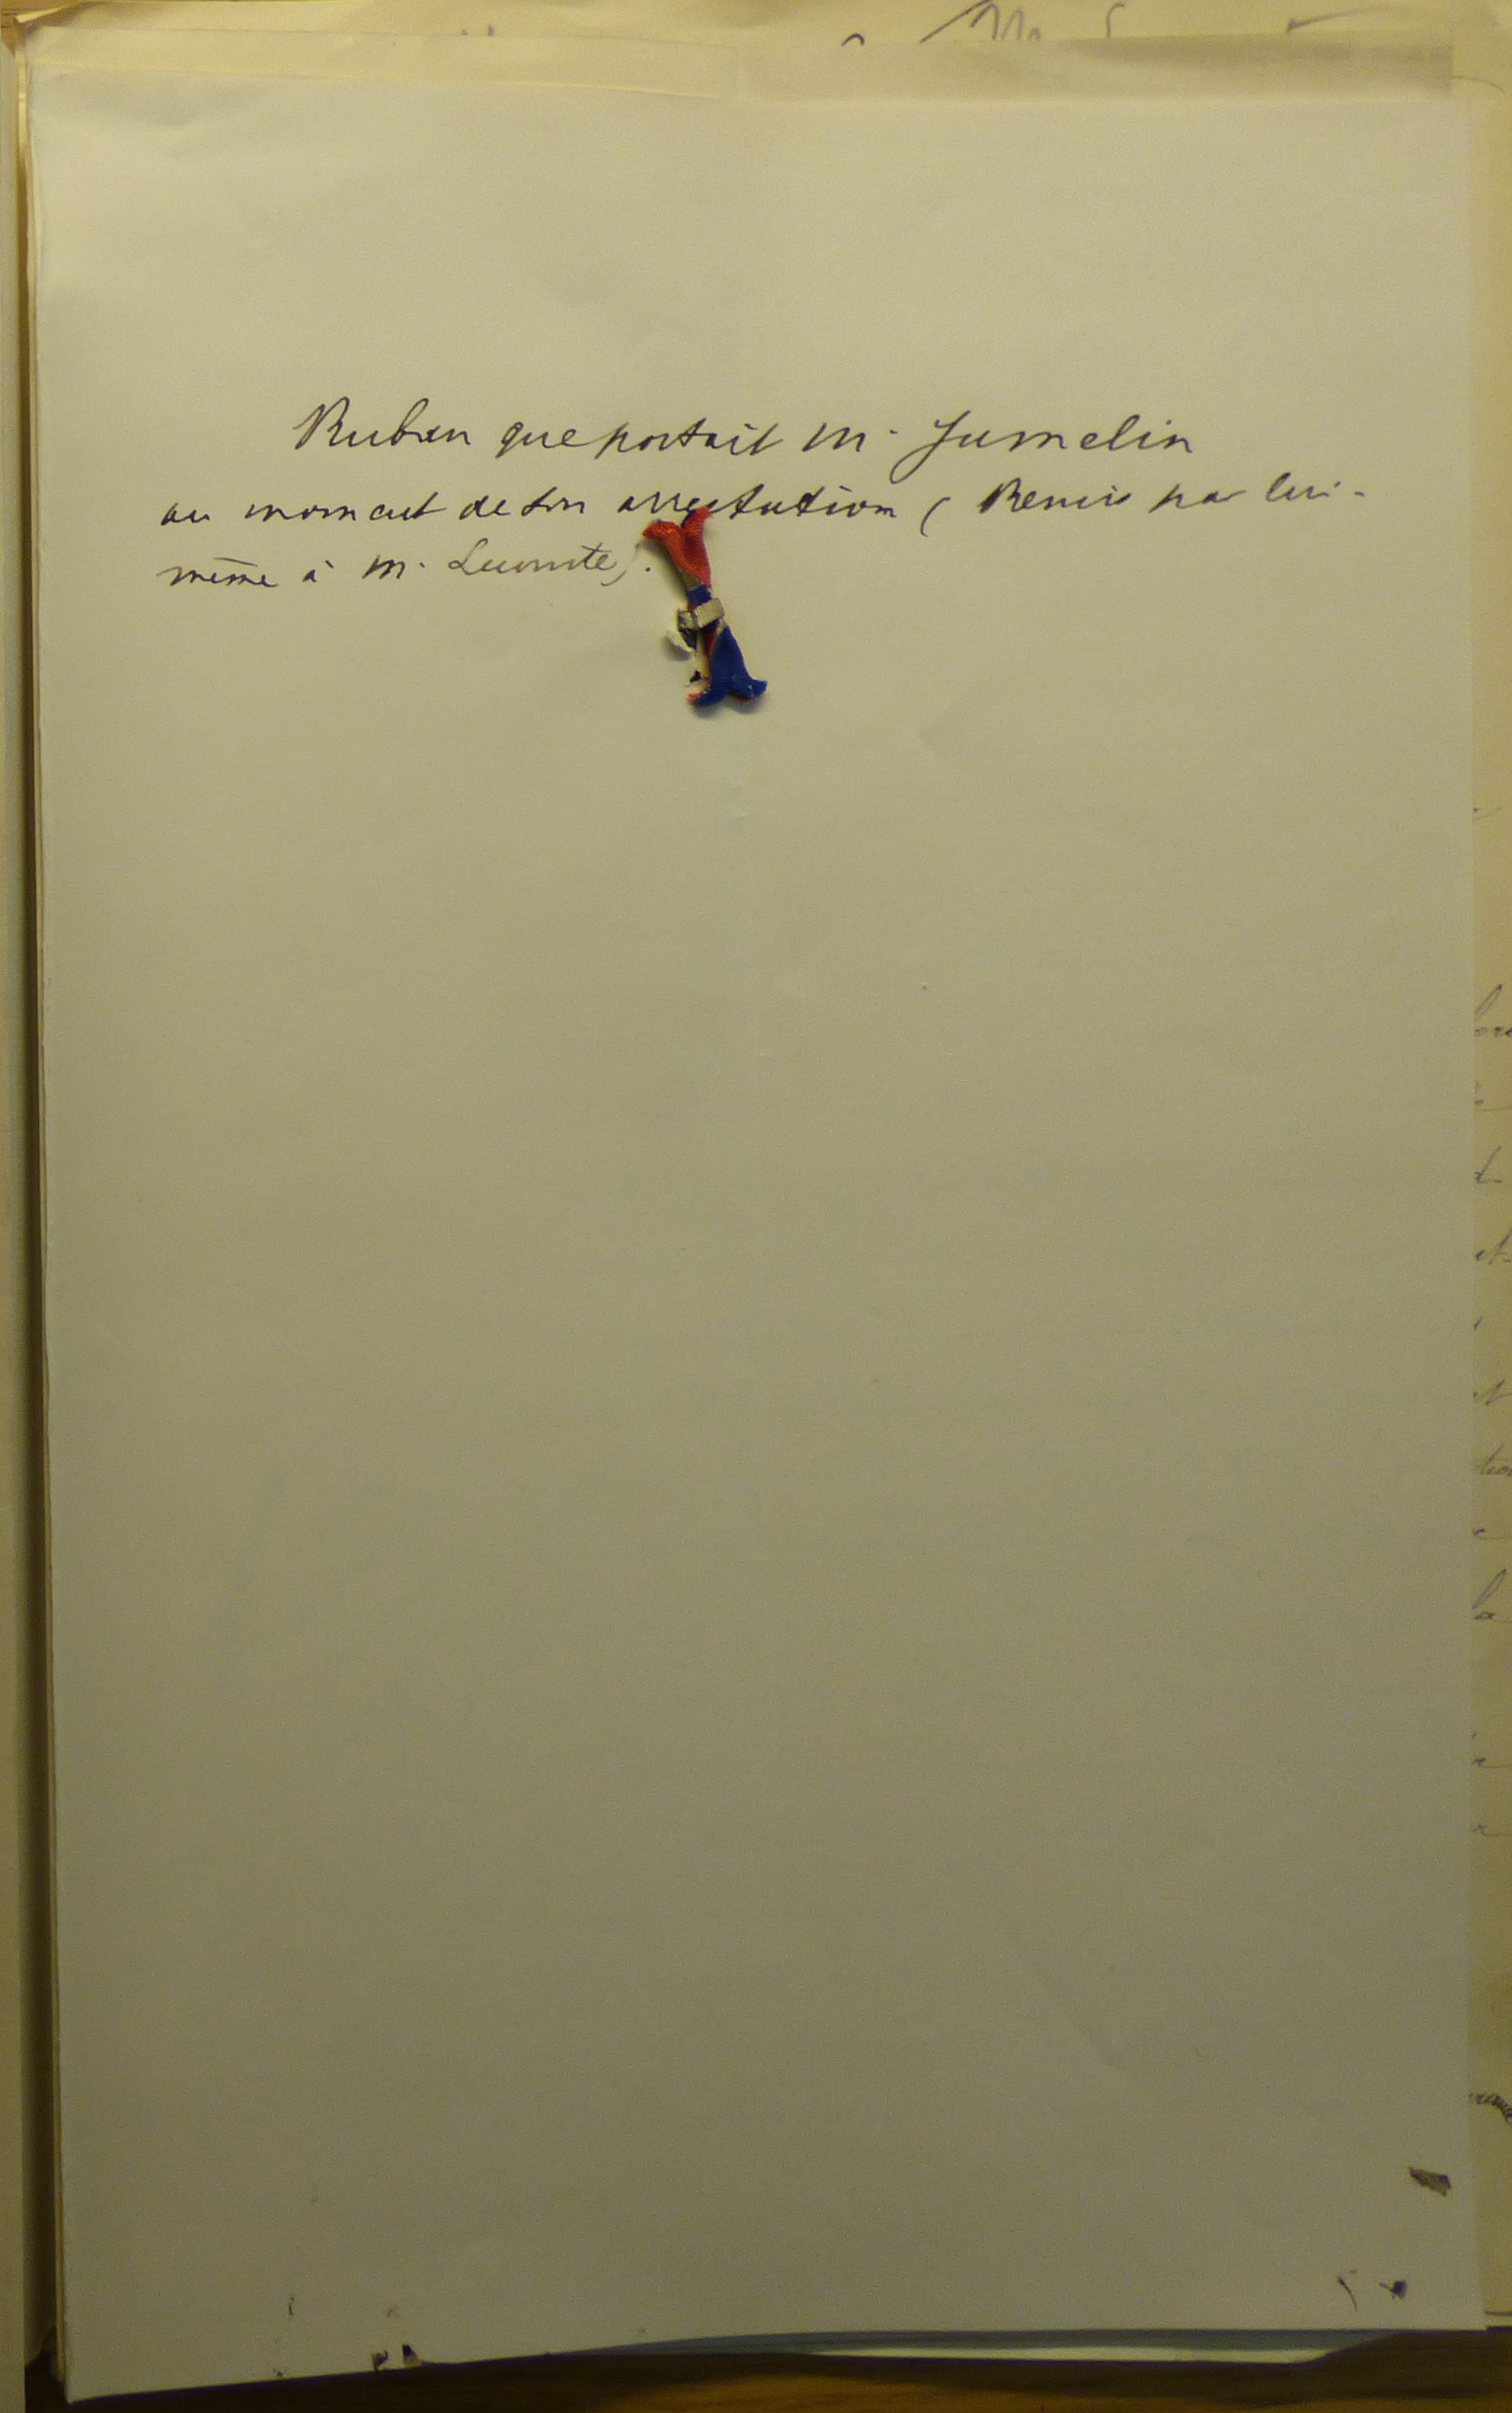 Ruban que portait M. Jumelin
au moment de son arrestation (Remis par lui-
même à M. Lecomte).